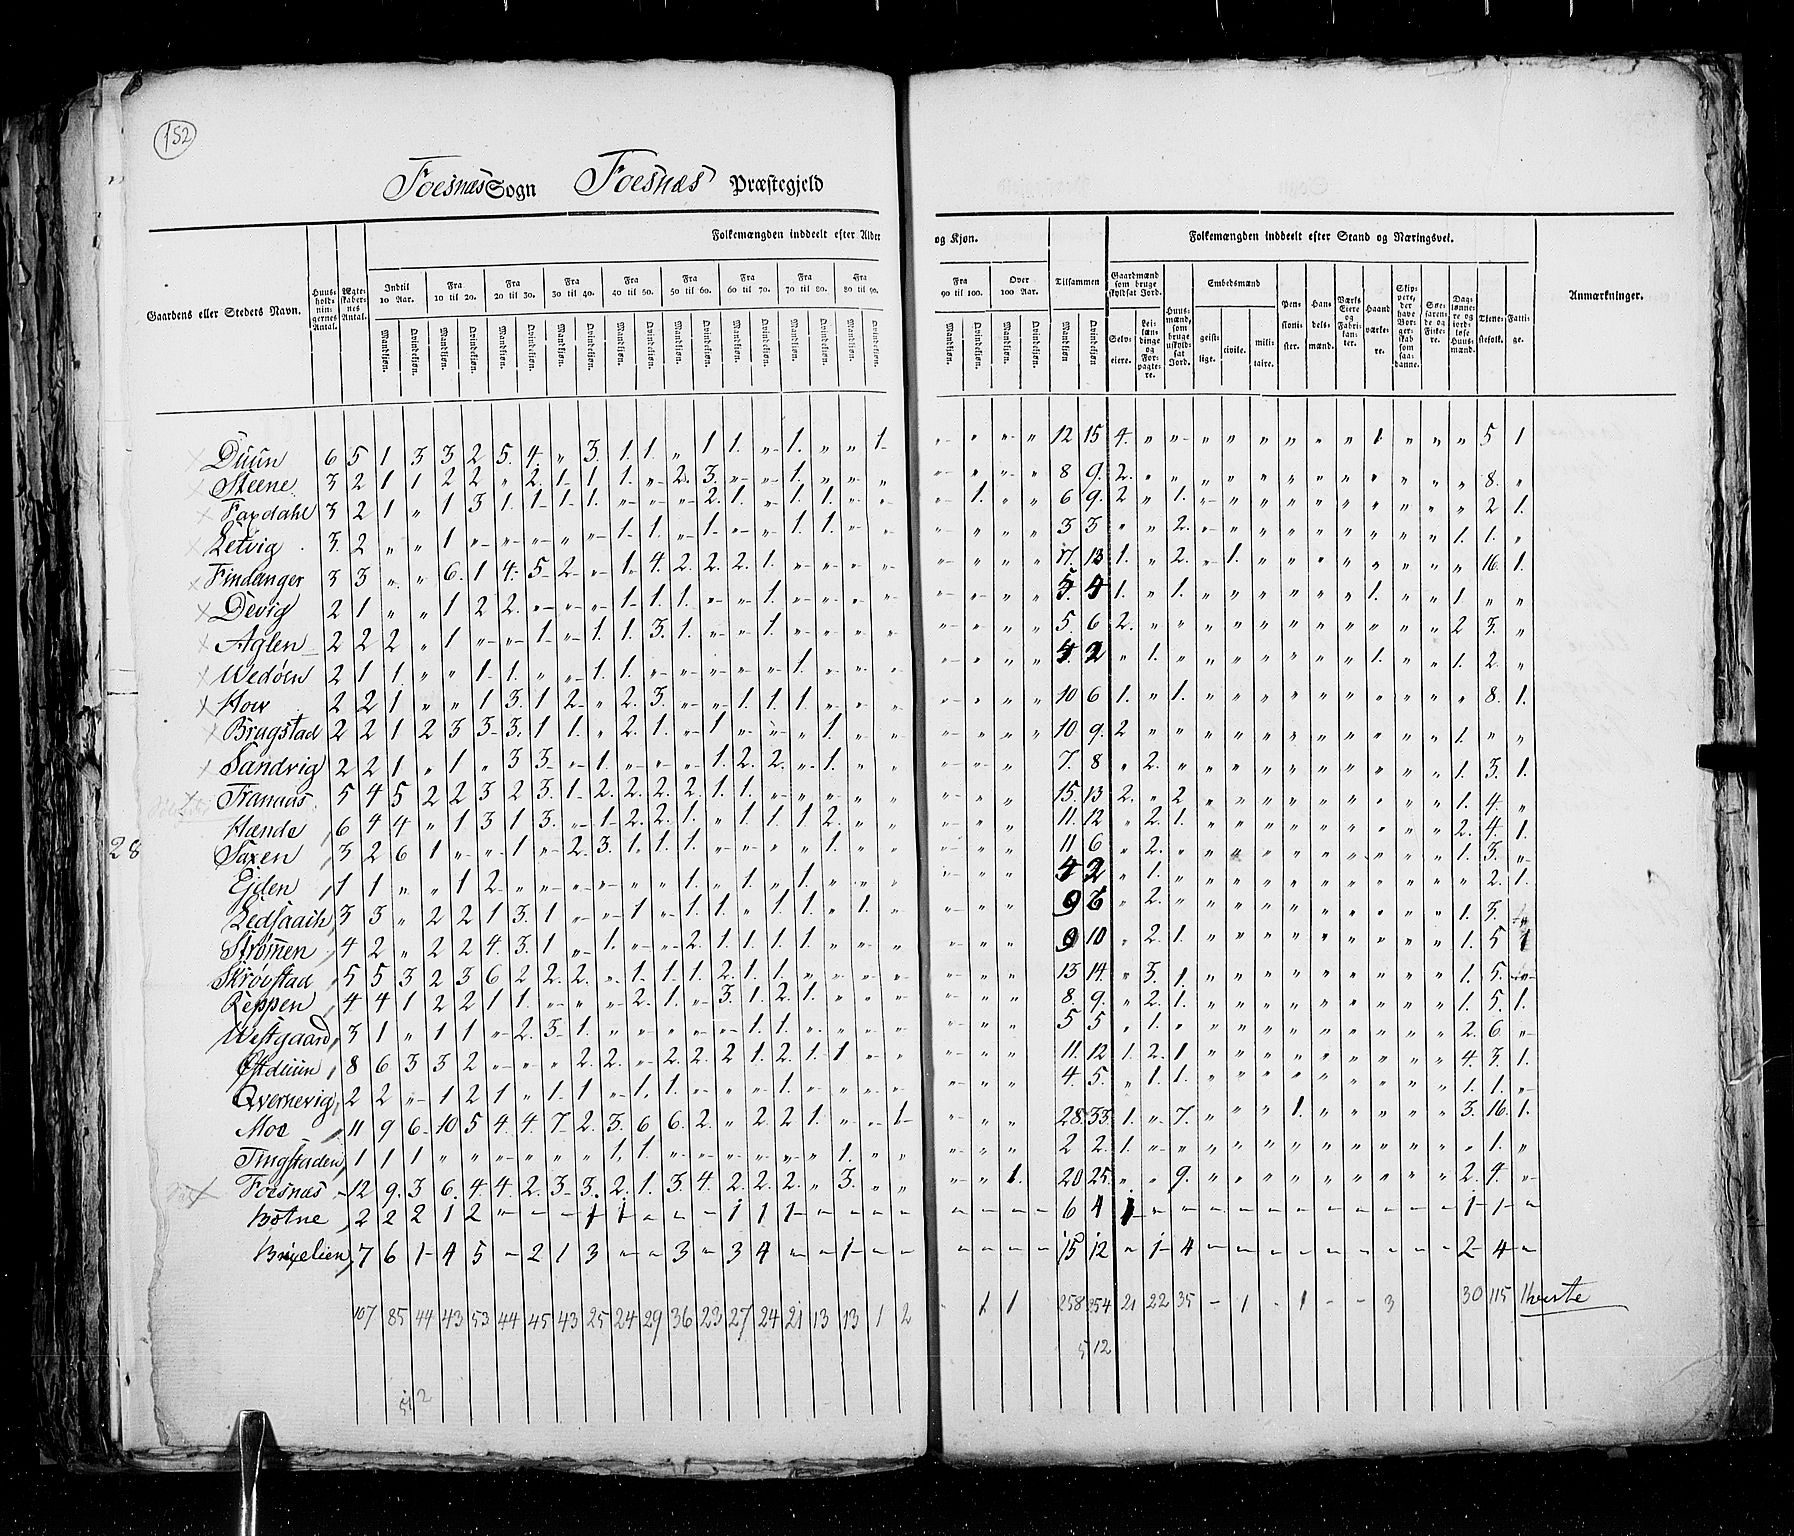 152
Foesnæs Sogn Foesnæs Præstegjeld
Gaardens eller Steders Navn.
Huus-holdnin-gernes Antal.
Ægte-skaber-nes Antal.
Folkemængden inddeelt efter Alder og Kjøn.
Indtil 10 Aar. Fra 10 til 20. Fra 20 til 30. Fra 30 til 40. Fra 40 til 50. Fra 50 til 60. Fra 60 til 70. Fra 70 til 80. Fra 80 til 90. Fra 90 til 100. Over 100 Aar. Tilsammen
Mandkjøn. Qvindekjøn.
Folkemængden inddeelt efter Stand og Næringsvei.
Gaardmænd som bruge skyldsat Jord.
Selv-eiere.
Lei-lændinge og For-pagtere.
Huus-mænd, som bruge uskyldsat Jord.
Embedsmænd
geist-lige. civile. mili-taire.
Pen-sioni-ster.
Han-dels-mænd.
Værks Eiere og Fabri-kan-ter.
Haand-værke-re.
Skip-pere, der have Bor-ger-skab som saa-danne.
Søe-farende og Fiske-re.
Dag-lønne-re og jord-løse Huus-mænd.
Tiene-stefolk.
Fatti-ge.
Anmærkninger.
Duun 6 5 1 3 3 2 5. 4. „ 3. 1. 1. „ 1 1. „ 1. „ „ 1. „ „ „ „ 12 15 4. „ „ „ „ „ „ „ „ 1 „ „ „ 5 1
Steene 3 2 1 1 2 2 „ 2. 1 1 1. „ 2. 3. „ „ 1. „ „ „ „ „ „ „ 8 9. 2. „ „ „ „ „ „ „ „ „ „ „ „ 8. „
Faxdahl 3 2 1 „ 1 3 1. 1 1. 1. „ „ „ 2. 1. „ 1. 1. „ „ „ 1. „ „ 6 9. 2 „ 1. „ „ „ „ „ „ „ „ „ „ 2 1.
Letvig 3. 2 „ „ 1 „ „ „ „ „ 1. 1. „ 1. „ „ 1. 1. „ „ „ „ „ „ 3 3 „ „ 2. „ „ „ „ „ „ „ „ „ 1. 1. „
Findanger 3 3 „ „ 6. 1 4. 5 2 „ 1. 4. 2. 2. 2. 1. „ „ „ „ „ „ „ „ 17. 13 1. „ 2. „ 1. „ „ „ „ „ „ „ „ 16. 1.
Devig 2 1 „ „ 1 2 2. „ „ „ 1. 1. 1. „ „ 1. „ „ „ „ „ „ „ „ 5. 4 1. „ 1. „ „ „ „ „ „ 1. „ „ 1 „ „
Aglen 2 2 2 „ 1 „ „ 1 „ 1. 1. 3. 1. „ „ 1. „ „ „ „ „ „ „ „ 5. 6 2. „ „ „ „ „ „ „ „ „ „ „ 2 3. „
Wedøen 2 1 1. „ „ 1. 1. „ „ 1. 1. „ „ „ „ „ 1. „ „ „ „ „ „ „ 4. 2 „ 1. „ „ „ „ „ „ „ 1. „ „ 1. 2. „
Hov 2 2 1 „ „ 1 3. 1 2 „ 2. 3. „ „ 1. 1. 1. „ „ „ „ „ „ „ 10 6 1. „ 1. „ „ „ „ „ „ „ „ „ „ 8. 1.
Bragstad 2 2 1 2 3 3 3. 1 1. „ 2. 1. „ 1 „ „ „ 1. „ „ „ „ „ „ 10 9. 2 „ „ „ „ „ „ „ „ „ „ „ 1. „ „
Sandvig 2 2 1 „ 1 „ 3 3 „ 1. „ „ „ 1. 2. 2. „ 1. „ „ „ „ „ „ 7. 8 „ 2. „ „ „ „ „ „ „ „ „ „ 1. 3. 1.
Tranaas 5 4 5 2 2 3 2 3. 1 2. 2. 2. 2. 1. 1. „ „ „ „ „ „ „ „ 15. 13 2. „ 2 „ „ „ „ „ „ „ „ „ 1. 4. „
Hænde 6 4 4 „ 1 3 1 3. „ 1 2. 2. 1. „ 1. 1. 1. 2. „ „ „ „ „ „ 11. 12 „ 2. 1. „ „ „ „ „ „ „ „ „ 2. 4. 1.
28
Saxen 3 2 6 1 „ „ 1 „ 2. 3. 1. 1. 1. „ „ „ „ 1. „ „ „ „ „ „ 11 6 „ 2. „ „ „ „ „ „ „ „ „ „ 1. 3. „
Ejden 1 1 „ „ 1 2 „ „ „ „ „ „ 1. „ 1. „ 1. „ „ „ „ „ „ „ 4 2 „ 1. „ „ „ „ „ „ „ „ „ „ „ 2. 1.
Ledsaach 3 3 „ 2 2 1 3. 1 „ „ 1 „ 1. 1. „ 1. „ „ 1. „ „ „ „ „ 9 6 „ 2. „ „ „ „ „ „ „ „ „ „ 1. 3. „
Strømen 4 2 „ 2 2 4. 3. 1 „ 1. „ „ 2. 1. 1. 1. 1. „ „ „ „ „ „ 9 10 „ 2. 1. „ „ „ „ „ „ „ „ „ 1. 5 1
Skrøvstad 5 5 3 2 3 6 2 2. 2. „ 1. 1. 1. 2. 1. 1. „ „ „ „ „ „ „ 13 14. „ 3. 1. „ „ „ „ „ „ „ „ „ 1. 5. „
Reppen 4 4 1 2 2 1 1. „ „ „ 2. 1. „ 3. 1. 2. 1. „ „ „ „ „ „ 8. 9. „ 2. 1. „ „ „ „ „ „ „ „ „ 1. 5. 1.
Westgaard 3 1 „ 1 1 „ 2. 3 1. „ „ „ „ „ 1. 1. „ „ „ „ „ „ „ 5 5 „ 1. „ „ „ „ „ „ „ „ „ „ 2. 6 „
Østduun 8 6 3 3 2 „ „ „ 2. 2. „ 2. 2. 2 1. 2. 1. 1 „ „ „ „ „ 11. 12 1. 2. 1 „ „ „ „ „ „ „ „ „ 4. 3. 1.
Qvernevig 2 2 „ 1 2 1 „ 1. 1 „ 1. 1. „ „ „ 1. „ „ „ „ „ „ „ 4. 5. „ 1. 1. „ „ „ „ „ „ „ „ „ 1. 1. „
Moe 11 9 6 10 5 4. 4. 7 2. 3. 6 6. 2. „ 2. 2 1. „ „ 1 „ „ „ 28. 33. 1. „ 7. „ „ „ 1. „ „ „ „ „ 3. 16. 1.
Tingstaden 1 1 1 „ „ „ „ „ „ 1. 1. „ „ „ „ „ „ 1. „ „ „ „ „ 2 2. 1. „ „ „ „ „ „ „ „ „ „ „ „ 1. „
Foesnæs 12 9. 3 6. 4. 4. 2. 3 3. 2. 1. 3. 4. 2. 2. 2. „ 3. „ „ „ „ 1. 20 25. „ „ 9. „ „ „ „ „ „ „ „ „ 2. 4. „
Botne 2 2 2 1 2 „ – – – 1 1 – – – 1 1 1 – – – – – – – 6 4 1 – – – – – – – – – – – 1 1 –
Brixelien 7 6 1 4 5 – 2 1 3 – – 3 – 3 4 – – 1 – – – – – – 15 12 – 1 4 – – – – – – – – – 2 4 –
107 85 44 43 53 44 45 43 25 24 29 36 23 27 24 21 13 13 1 2 1 1 258 254 21 22 35 – 1 – 1 – – 3 30 115
512
512